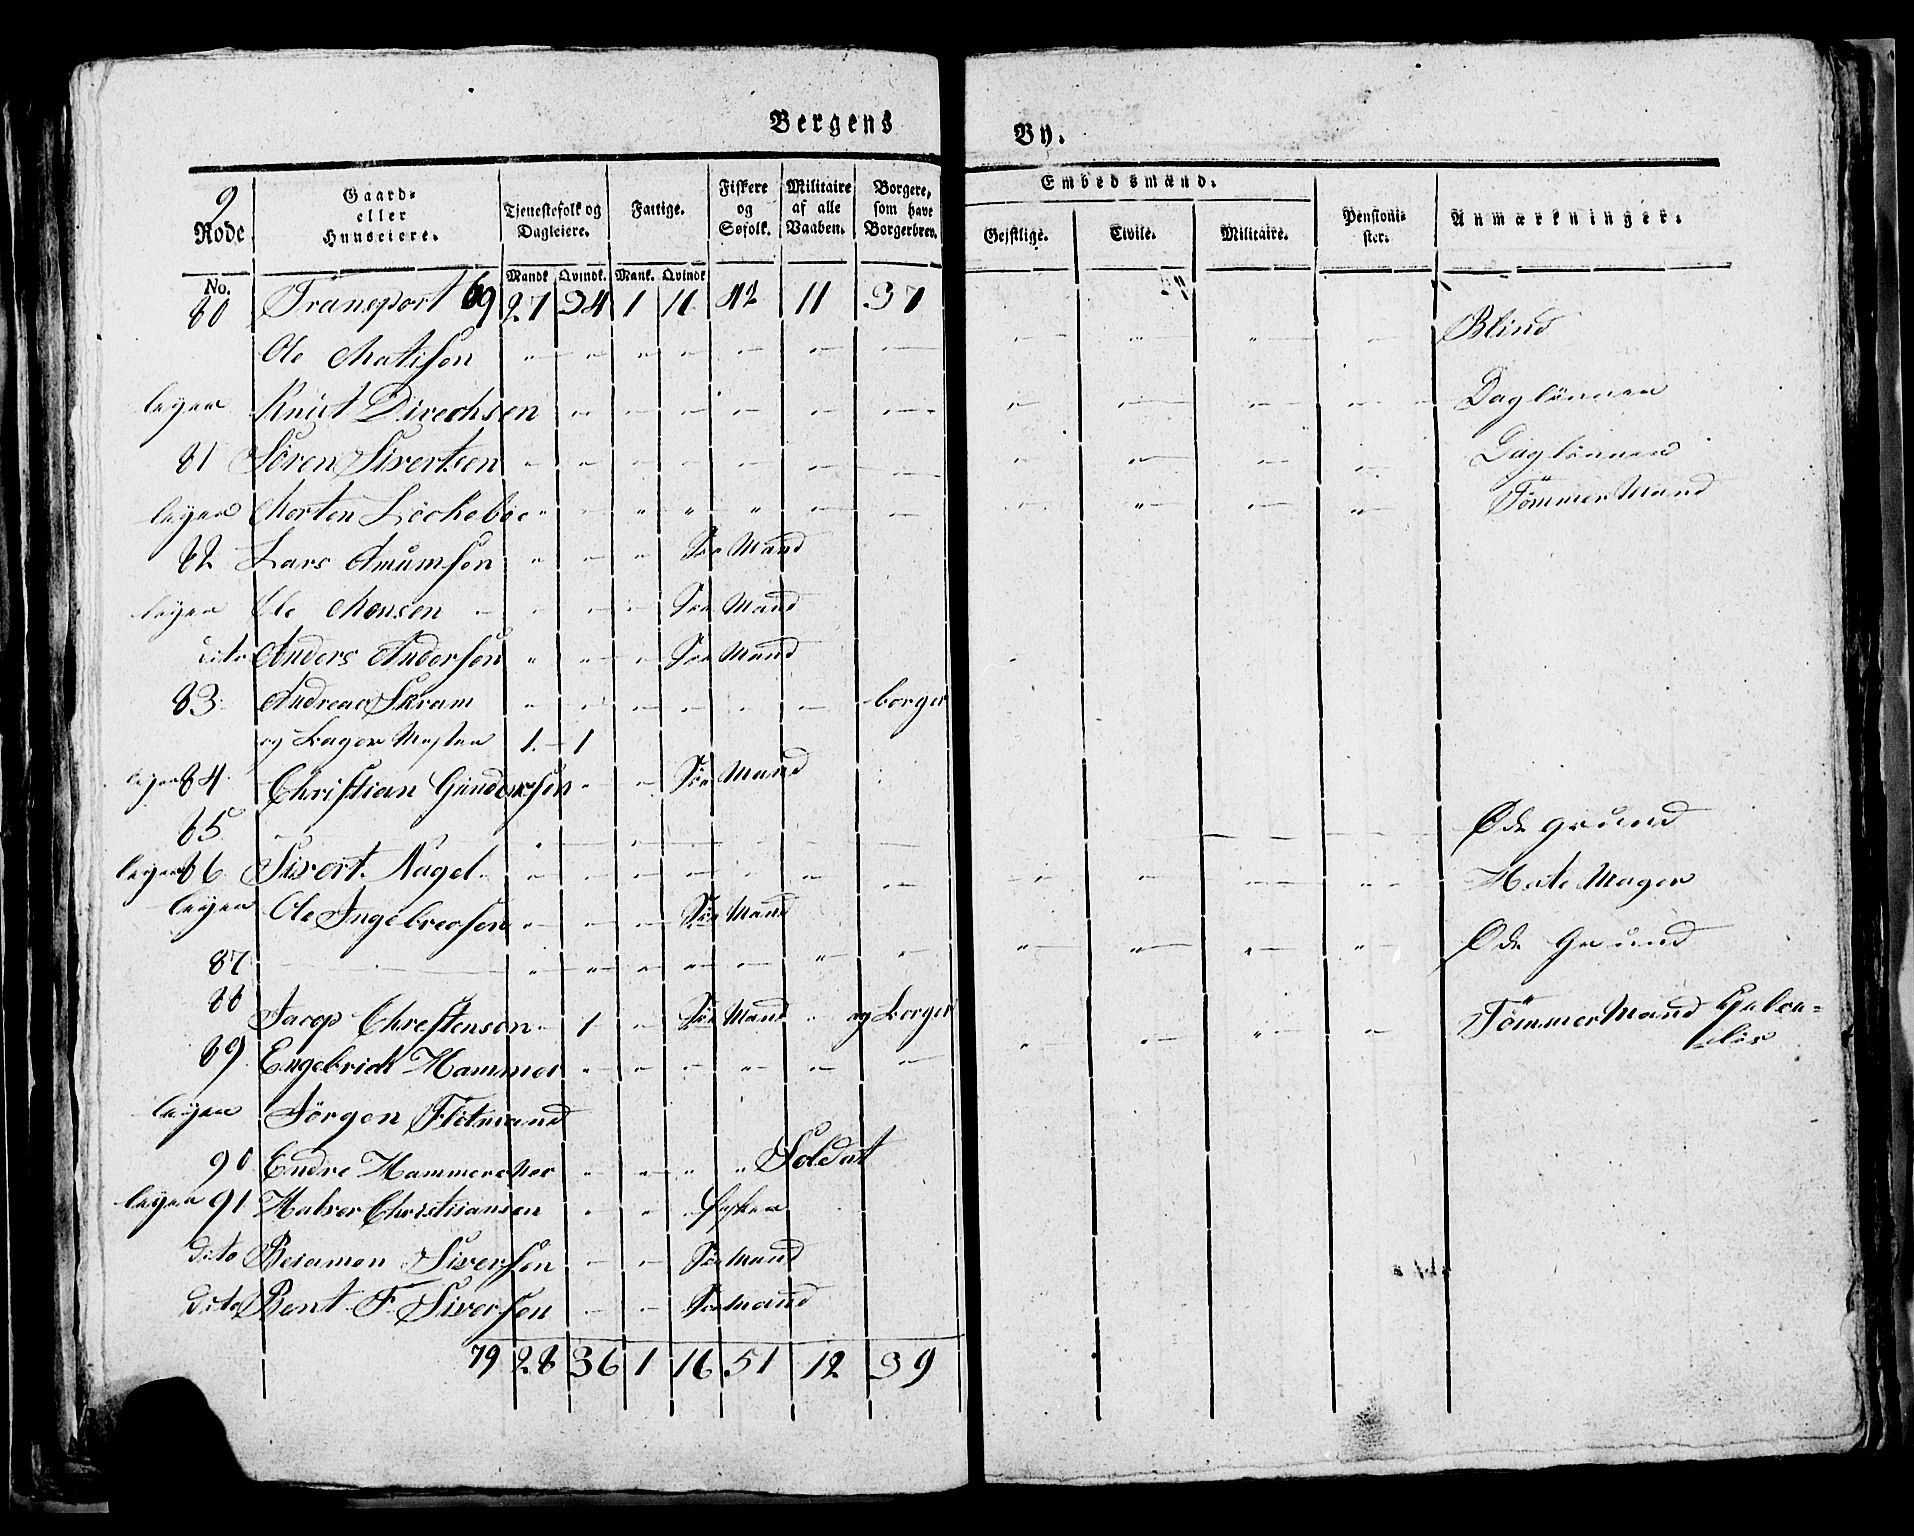 Bergens By.
9 Rode No. | Gaard- eller Huuseiere. | Tjenestefolk og Dagleiere. Mandk Qvindk. | Fattige. Mank. Qvindk | Fiskere og Søfolk. | Militaire af alle Vaaben. | Borgere, som have Borgerbrev. | Embedsmænd. Gejstlige. Civile. Militaire. | Pensioni- ster. | Anmærkninger.
80 Transport 69 27 34 1 11 42 11 37
Ole Matison Blind
leyer Knut Direchsen Daglönner
81 Sören Sivertsen Daglönner
leyer Morten Löckeböe TömmerMand
82 Lars Amumsen Söe Mand
leyer Ole Monsen Söe Mand
dito Anders Andersen Söe Mand
83 Andreas Skram borger
og Lager Mester 1 1
leyer 84 Christian Gundersen Söe Mand
85 Øde grund
leyer 86 Sivert Nagel Hate Mager
leyer Ole Ingebrecsen Söe Mand
87 Øde Grund
88 Jacop Christensen 1 Söe Mand og Borger
89 Engebrict Hammer TömmerMand
leyer Jörgen Flötmand
90 Endre Hammersker Soldat
leyer 91 Halvor Christiansen fysker
dito Beiamen Siversen Söe Mand
dito Bent F. Siversen Söe Mand
79 28 36 1 16 51 12 39